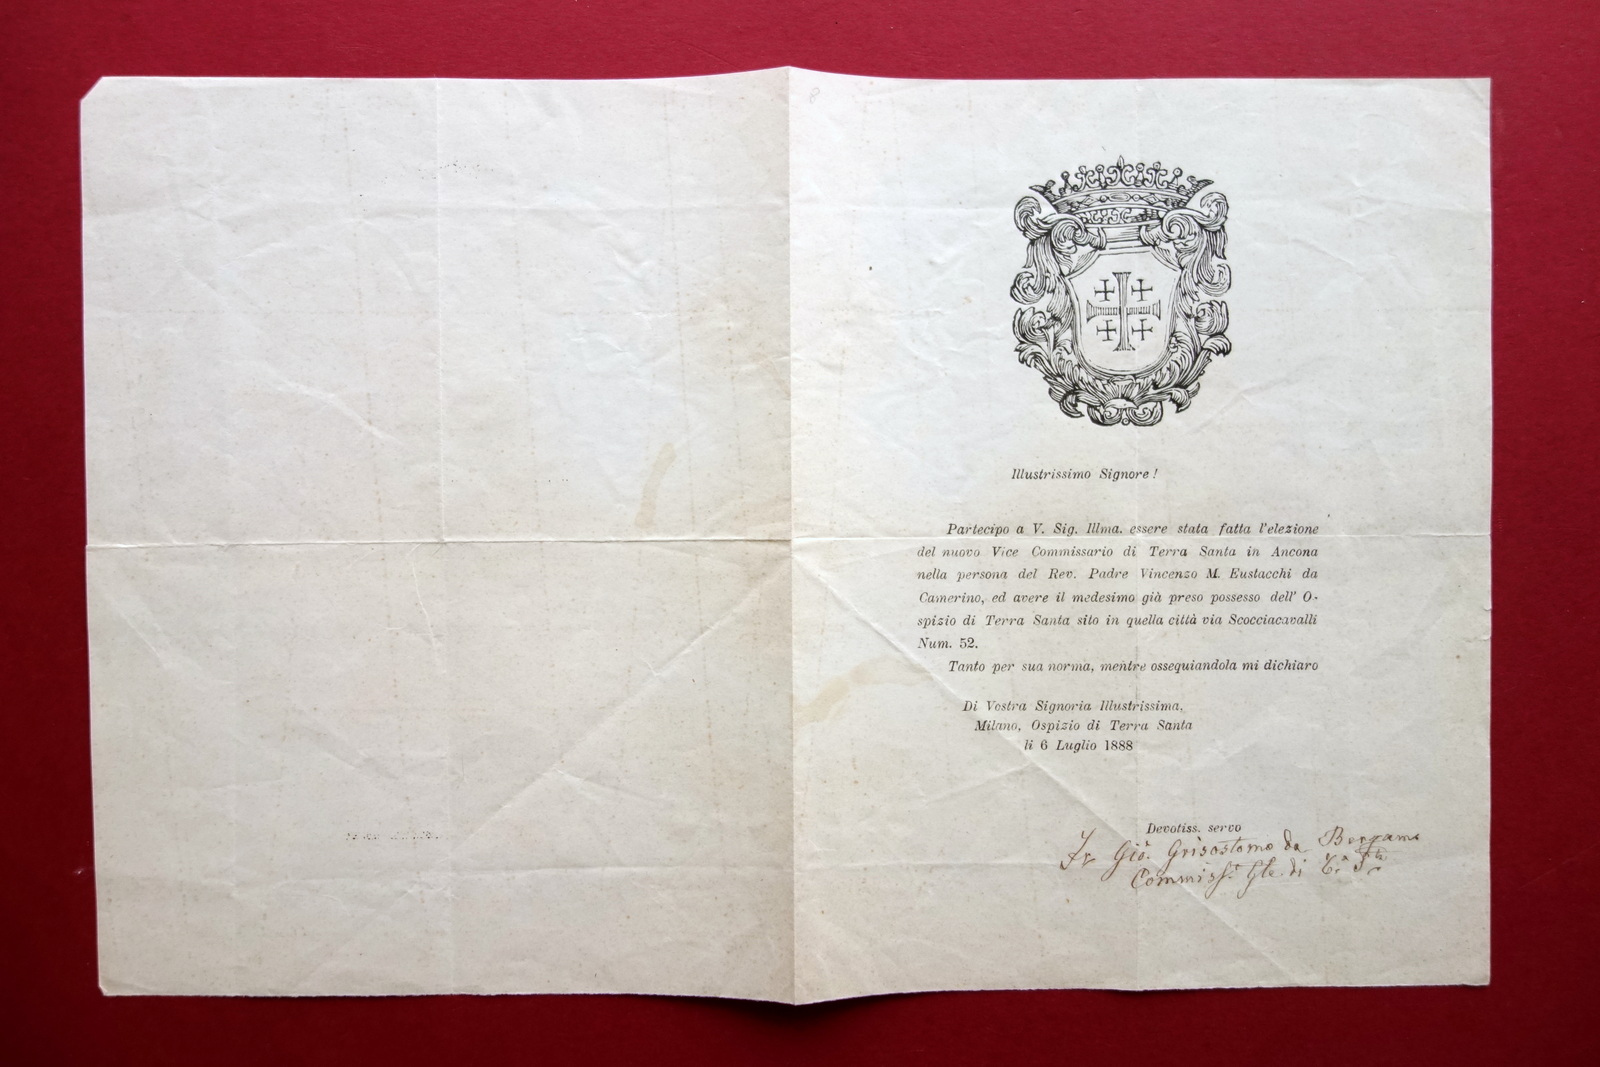 8
Illustrissimo Signore !
Partecipo a V. Sig. Illma. essere stata fatta l'elezione
del nuovo Vice Commissario di Terra Santa in Ancona
nella persona del Rev. Padre Vincenzo M. Eustacchi da
Camerino, ed avere il medesimo già preso possesso dell' O-
spizio di Terra Santa sito in quella città via Scocciacavalli
Num. 52.
Tanto per sua norma, mentre ossequiandola mi dichiaro
Di Vostra Signoria Illustrissima,
Milano, Ospizio di Terra Santa
li 6 Luglio 1888
Devotiss. servo
Fr Gio. Grisostomo da Bergamo
Commiss. Gle. di T.a S.ta